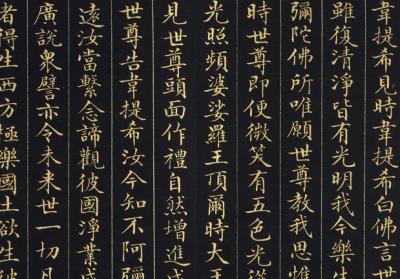 韋提希見時韋提希白佛言世
雖復清淨皆有光明我今樂生
彌陀佛所唯願世尊教我思惟
時世尊即便微笑有五色光
光照頻婆娑羅王頂爾時大王
見世尊頭面作禮自然增進成
世尊告韋提希汝今知不阿彌
遠汝當繫念諦觀彼國淨業成
廣說衆譬亦令未来世一切凡
者得生西方極樂國土欲生彼